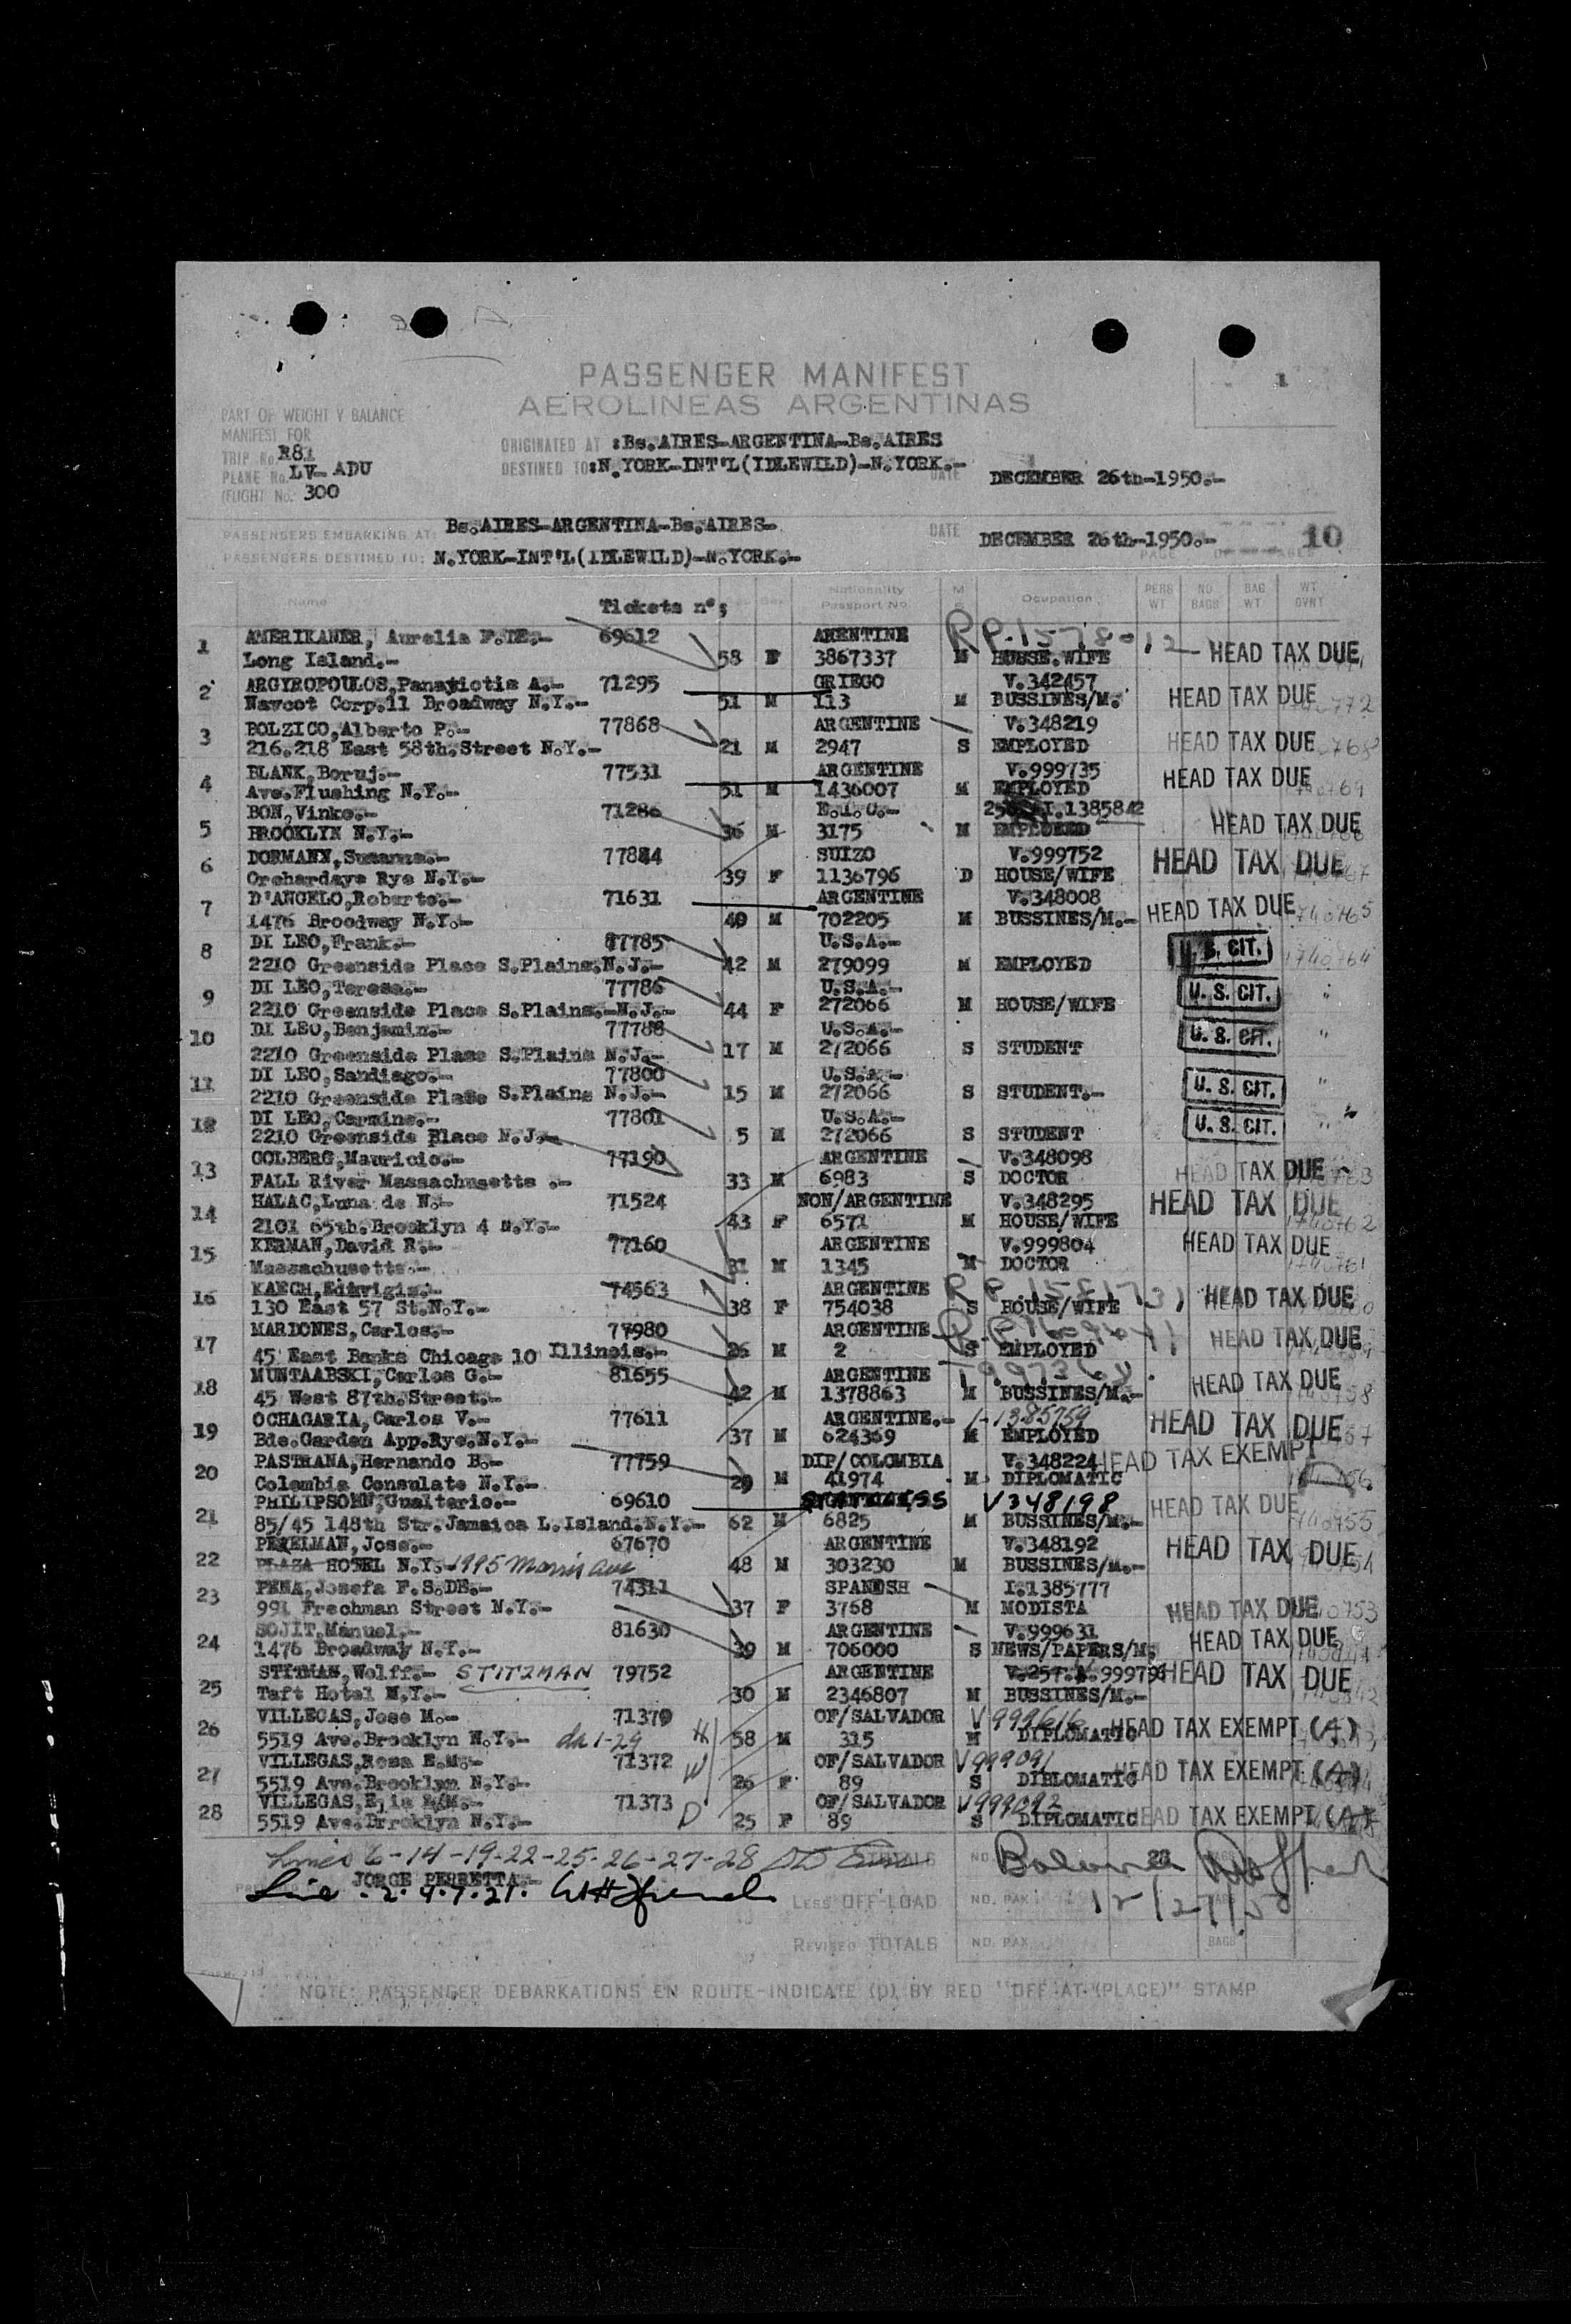 1
PASSENGER MANIFEST
AEROLINEAS ARGENTINAS
PART OF WEIGHT Y BALANCE
MANIFEST FOR
TRIP No. R81
PLANE No. LV-ADU
(FLIGHT No. 300
ORIGINATED AT :Bs.AIRES-ARGENTINA-Bs.AIRES
DESTINED TO:N.YORK-INT'L(IDLEWILD)-N.YORK.-
DATE DECEMBER 26th-1950.-
PASSENGERS EMBARKING AT: Bs.AIRES-ARGENTINA-Bs.AIRES-
DATE DECEMBER 26th-1950.- 10
PASSENGERS DESTINED TO: N.YORK-INT'L(IDLEWILD)-N.YORK.- PAGE
Name Tickets n°; Sex Nationality Passport No. M S Ocupation PERS WT NO BAGS BAG WT WT OVNT
1 AMERIKANER, Aurelia F.DE.- 69612 ARENTINE
Long Island.- 58 F 3867337 M HOUSE.WIFE HEAD TAX DUE
2 ARGYROPOULOS,Panayiotis A.- 71295 GRIEGO V.342457
Navcot Corp.11 Broadway N.Y.- 51 M 113 M BUSSINES/M. HEAD TAX DUE
3 BOLZICO,Alberto P.- 77868 ARGENTINE V.348219
216.218 East 58th.Street N.Y.- 21 M 2947 S EMPLOYED HEAD TAX DUE
4 BLANK,Boruj.- 77531 ARGENTINE V.999735
Ave.Flushing N.Y.- 51 M 1436007 M EMPLOYED HEAD TAX DUE
5 BON,Vinko.- 71286 I.1385842
BROOKLYN N.Y.- 36 M 3175 M EMPLOYED HEAD TAX DUE
6 DORMANN,Susanna.- 77884 SUIZO V.999752
Orchardays Rye N.Y.- 39 F 1136796 D HOUSE/WIFE HEAD TAX DUE
7 D'ANGELO,Roberto.- 71631 ARGENTINE V.348008
1476 Broodway N.Y.- 40 M 702205 M BUSSINES/M.- HEAD TAX DUE
8 DI LEO,Frank.- 77785 U.S.A.-
2210 Greenside Place S.Plains.N.J.- 42 M 279099 M EMPLOYED U. S. CIT.
9 DI LEO,Teresa.- 77786 U.S.A.-
2210 Greenside Place S.Plains.-N.J.- 44 F 272066 M HOUSE/WIFE U. S. CIT.
10 DI LEO,Benjamin.- 77788 U.S.A.-
2210 Greenside Plase S.Plains N.J.- 17 M 272066 S STUDENT U. S. CIT.
11 DI LEO,Sandiago.- 77800 U.S.A.-
2210 Greenside Plase S.Plains N.J.- 15 M 272066 S STUDENT.- U. S. CIT.
12 DI LEO,Carmine.- 77801 U.S.A.-
2210 Greenside Place N.J.- 5 M 272066 S STUDENT U. S. CIT.
13 GOLBERG,Mauricio.- 77190 ARGENTINE V.348098
FALL River Massachusetts .- 33 M 6983 S DOCTOR HEAD TAX DUE
14 HALAC,Luna de N.- 71524 NON/ARGENTINE V.348295
2101 65th.Brooklyn 4 N.Y.- 43 F 6571 M HOUSE/WIFE HEAD TAX DUE
15 KERMAN,David R.- 77160 ARGENTINE V.999804
Massachusetts.- 31 M 1345 M DOCTOR HEAD TAX DUE
16 KAECH,Eduvigis.- 74563 ARGENTINE
130 East 57 St.N.Y.- 38 F 754038 S HOUSE/WIFE HEAD TAX DUE
17 MARDONES,Carlos.- 77980 ARGENTINE
45 East Banks Chicago 10 Illinois.- 26 M 2 S EMPLOYED HEAD TAX DUE
18 MUNTAABSKI,Carlos G.- 81655 ARGENTINE
45 West 87th.Street.- 42 M 1378863 M BUSSINES/M.- HEAD TAX DUE
19 OCHAGARIA,Carlos V.- 77611 ARGENTINE.- I-1385759
Bds.Garden App.Rye.N.Y.- 37 M 624369 M EMPLOYED HEAD TAX DUE
20 PASTRANA,Hernando B.- 77759 DIP/COLOMBIA V.348224 HEAD TAX EXEMPT
Colombia Consulate N.Y.- 29 M 41974 M DIPLOMATIC
21 PHILIPSOHN,Gualterio.- 69610 V348198
85/45 148th Str.Jamaica L.Island.N.Y.- 62 M 6825 M BUSSINES/M.- HEAD TAX DUE
22 PERELMAN,Jose.- 67670 ARGENTINE V.348192
PLAZA HOTEL N.Y.- 1995 Morris Ave 48 M 303230 M BUSSINES/M.- HEAD TAX DUE
23 PENA,Josefa F.S.DE.- 74311 SPANISH I.1385777
991 Frechman Street N.Y.- 37 F 3768 M MODISTA HEAD TAX DUE
24 SOJIT,Manuel.- 81630 ARGENTINE V.999631
1476 Broadway N.Y.- 39 M 706000 S NEWS/PAPERS/M. HEAD TAX DUE
25 STITMAN,Wolff.- STITZMAN 79752 ARGENTINE
Taft Hotel N.Y.- 30 M 2346807 M BUSSINES/M.- HEAD TAX DUE
26 VILLEGAS,Jose M.- 71370 OF/SALVADOR V999616
5519 Ave.Brooklyn N.Y.- H 58 M 315 M DIPLOMATIC HEAD TAX EXEMPT (A)
27 VILLEGAS,Rosa E.M.- 71372 OF/SALVADOR V999091
5519 Ave.Brooklyn N.Y.- W 26 F 89 S DIPLOMATIC HEAD TAX EXEMPT (A)
28 VILLEGAS, 71373 OF/SALVADOR V999092
5519 Ave.Brroklyn N.Y.- D 25 F 89 S DIPLOMATIC HEAD TAX EXEMPT (A)
Lines 6-14-19-22-25-26-27-28
JORGE PERRETTA.- 28
Line . 2. 4. 7. 21.
LESS OFF-LOAD NO. PAX 12/27/50
REVISED TOTALS NO. PAX BAGS
NOTE: PASSENGER DEBARKATIONS EN ROUTE-INDICATE (D) BY RED "OFF-AT-(PLACE)" STAMP